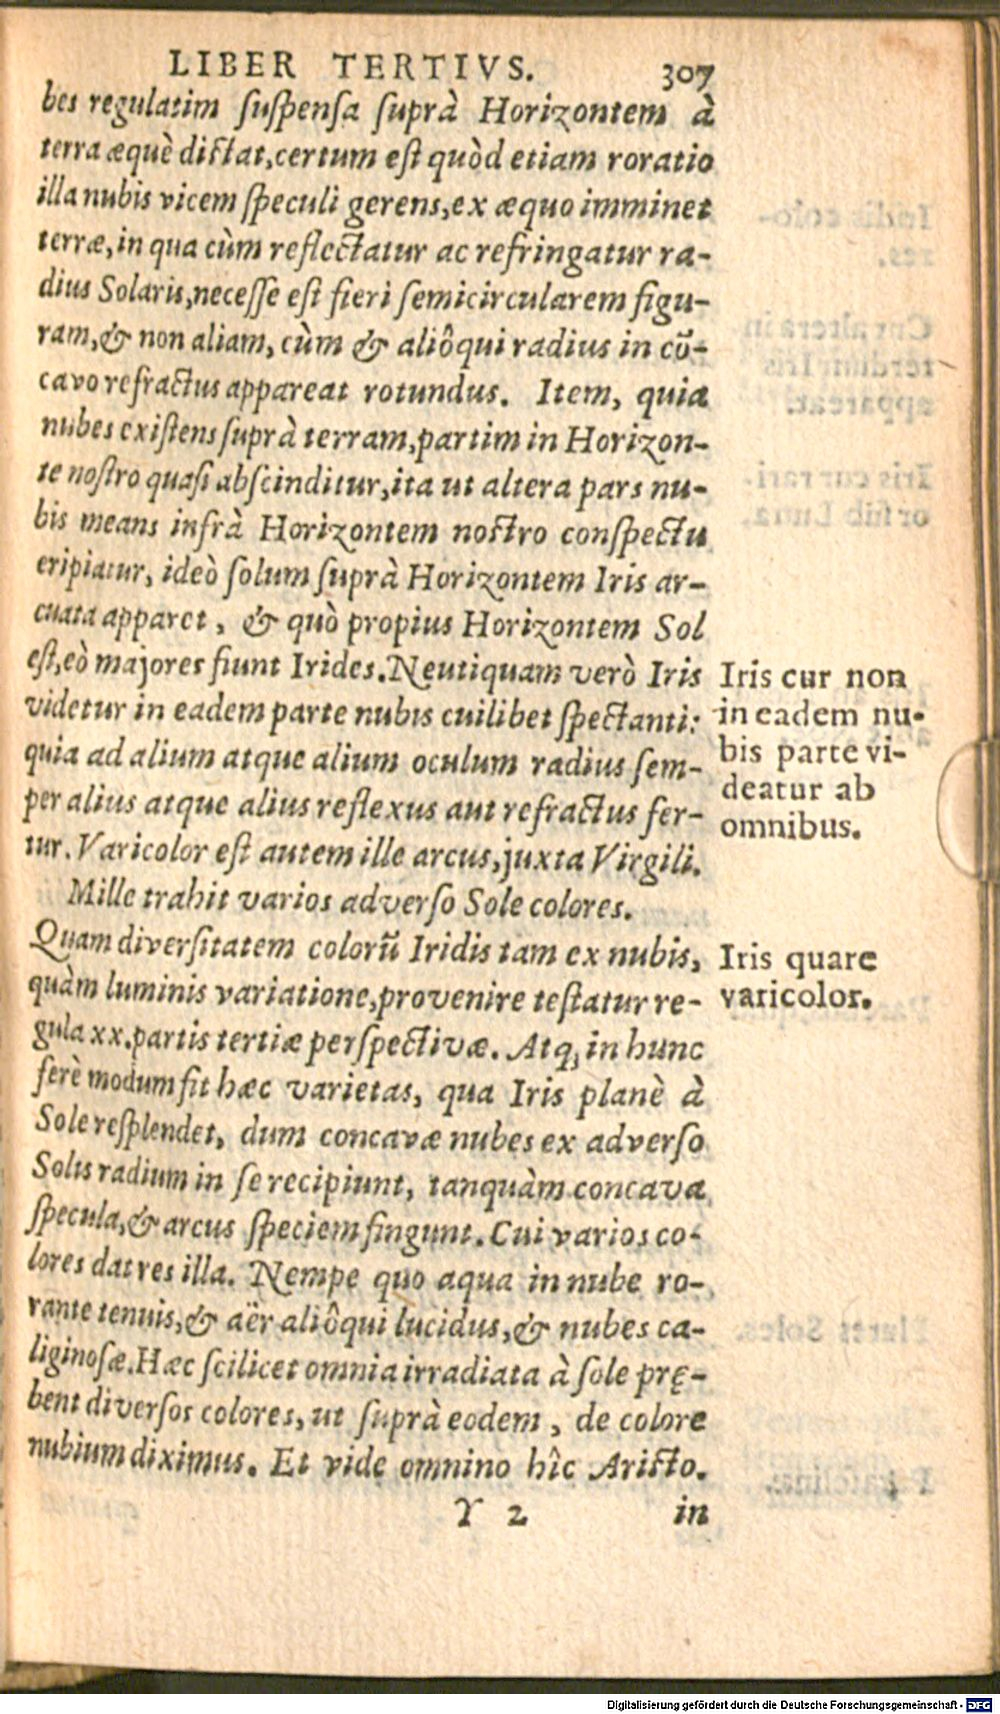 LIBER TERTIVS. 307
bes regulatim suspensa suprà Horizontem à
terra æquè distat, certum est quòd etiam roratio
illa nubis vicem speculi gerens, ex æquo imminet
terræ, in qua cùm reflectatur ac refringatur ra-
dius Solaris, necesse est fieri semicircularem figu-
ram, & non aliam, cùm & aliôqui radius in cō-
cavo refractus appareat rotundus. Item, quia
nubes existens suprà terram, partim in Horizon-
te nostro quasi abscinditur, ita ut altera pars nu-
bis means infrà Horizontem nostro conspectu
eripiatur, ideò solum suprà Horizontem Iris ar-
cuata apparet, & quò propius Horizontem Sol
est, eò majores fiunt Irides. Neutiquam verò Iris
videtur in eadem parte nubis cuilibet spectanti:
quia ad alium atque alium oculum radius sem-
per alius atque alius reflexus aut refractus fer-
tur. Varicolor est autem ille arcus, juxta Virgili.
Mille trahit varios adverso Sole colores.
Quam diversitatem colorū Iridis tam ex nubis,
quàm luminis variatione, provenire testatur re-
gula xx. partis tertiæ perspectivæ. Atq; in hunc
ferè modum fit hæc varietas, qua Iris planè à
Sole resplendet, dum concavæ nubes ex adverso
Solis radium in se recipiunt, tanquàm concava
specula, & arcus speciem fingunt. Cui varios co-
lores dat res illa. Nempe quo aqua in nube ro-
rante tenuis, & aër aliôqui lucidus, & nubes ca-
liginosæ. Hæc scilicet omnia irradiata à sole prę-
bent diversos colores, ut suprà eodem, de colore
nubium diximus. Et vide omnino hîc Aristo.
Y 2 in
Iris cur non
in eadem nu-
bis parte vi-
deatur ab
omnibus.
Iris quare
varicolor.
Digitalisierung gefördert durch die Deutsche Forschungsgemeinschaft - DFG